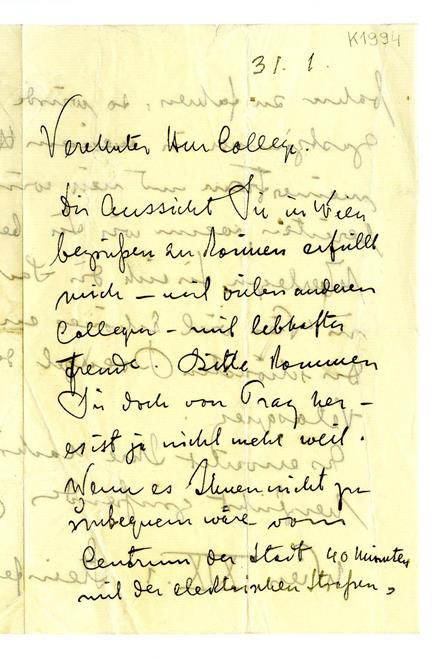 K1994
31. 1.
Verehrter Herr College.
Die Aussicht Sie in Wien
begrüßen zu können erfüllt
mich – mit vielen anderen
Collegen – mit lebhafter
Freude. Bitte kommen
Sie doch von Prag her –
es ist ja nicht mehr weit.
Wenn es Ihnen nicht zu
unbequem wäre vom
Centrum der Stadt 40 Minuten
mit der electrischen Straßen,